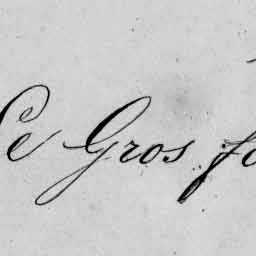 Le Gros fo